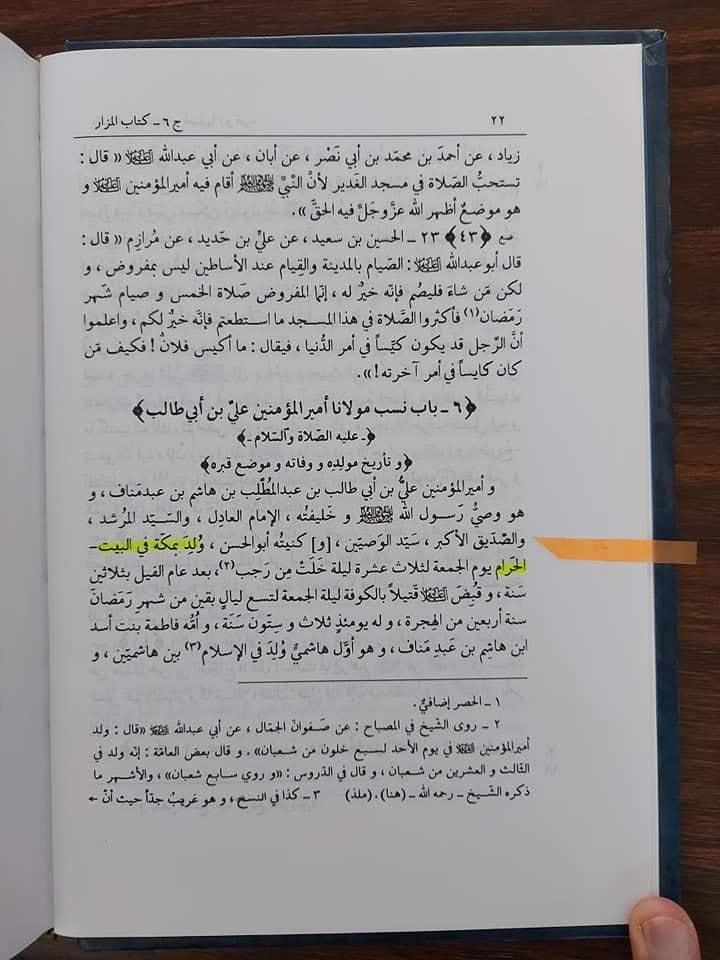 ٢٢
ج ٦ ـ كتاب المزار
زياد ، عن أحمدَ بن محمّد بن أبي نَصْر ، عن أبان ، عن أبي عبدالله عليه‌السلام « قال :
تستحبُّ الصّلاة في مسجد الغَدير لأنَّ النَّبيَّ صلى‌الله‌عليه‌وآله أقام فيه أميرالمؤمنين عليه‌السلام و
هو موضعٌ أظهر الله عزَّوجلَّ فيه الحقَّ » .
﴿٤٣﴾ ٢٣ ـ الحسين بن سعيد ، عن عليِّ بن حَديد ، عن مُرازِم « قال :
قال أبوعبدالله عليه‌السلام : الصّيام بالمدينة والقِيام عند الأساطين ليس بمفروض ، و
لكن مَن شاءَ فليصُم فإنّه خيرٌ له ، إنّما المفروض صَلاة الخمس و صيام شهر
رَمَضان(١) فأكثروا الصَّلاة في هذا المسجد ما استطعتم فإنَّه خيرٌ لكم ، واعلموا
أنَّ الرَّجل قد يكون كيّساً في أمر الدُّنيا ، فيقال : ما أكيس فلانٌ ! فكيف مَن
كان كايساً في أمر آخرته ! » .
﴿٦ ـ باب نسب مولانا أميرالمؤمنين عليِّ بن أبي طالب﴾
﴿ـ عليه الصّلاة والسّلام ـ﴾
﴿و تأريخ مولدِه و وفاته و موضع قبره﴾
و أميرالمؤمنين عليُّ بن أبي طالب بن عبدالمُطَّلِب بن هاشم بن عبدمَناف ، و
هو وصيُّ رَسول الله صلى‌الله‌عليه‌وآله و خَليفتُه ، الإمام العادِل ، والسَّيّد المُرشد ،
والصِّدّيق الأكبر ، سَيّد الوَصيّين ، [و] كنيتُه أبوالحسن ، وُلِدَ بمكّة في البيت ـ
الحَرام يوم الجمعة لثلاث عشرة ليلة خَلَتْ مِن رَجب(٢)، بعد عام الفيل بثلاثين
سَنة ، و قُبِضَ عليه‌السلام قَتيلاً بالكوفة ليلة الجمعة لتسع ليالٍ بقين من شهر رَمَضانَ
سنة أربعين من الهِجرة ، و له يومئذٍ ثلاث و ستّون سَنَة ، و أُمّه فاطمة بنت أسد
ابن هاشِم بن عَبدِ مَناف ، و هو أوّل هاشميٍّ وُلِدَ في الإسلام(٣) بين هاشميّين ، و
١ ـ الحصر إضافيٌّ .
٢ ـ روى الشّيخ في المصباح : عن صَفوان الجَمّال ، عن أبي عبدالله عليه‌السلام «قال : ولد
أميرالمؤمنين عليه‌السلام في يوم الأحد لسبع خلون من شعبان» . و قال بعض العامّة : إنّه ولد في
الثالث و العشرين من شعبان ، و قال في الدّروس : «و روي سابع شعبان» ، والأشهر ما
ذكره الشّيخ ـ رحمه الله ـ (هنا) . (ملذ) ٣ ـ كذا في النسخ ، و هو غريبٌ جدّاً حيث أنّ ←